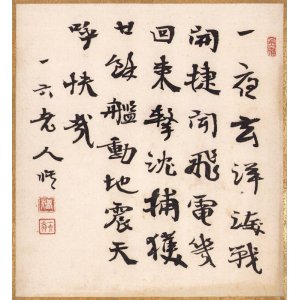 一夜玄洋海戰
開捷聞飛電幾
回来撃沈捕獲
廿餘艦動地震天
呼快哉
一六老人修